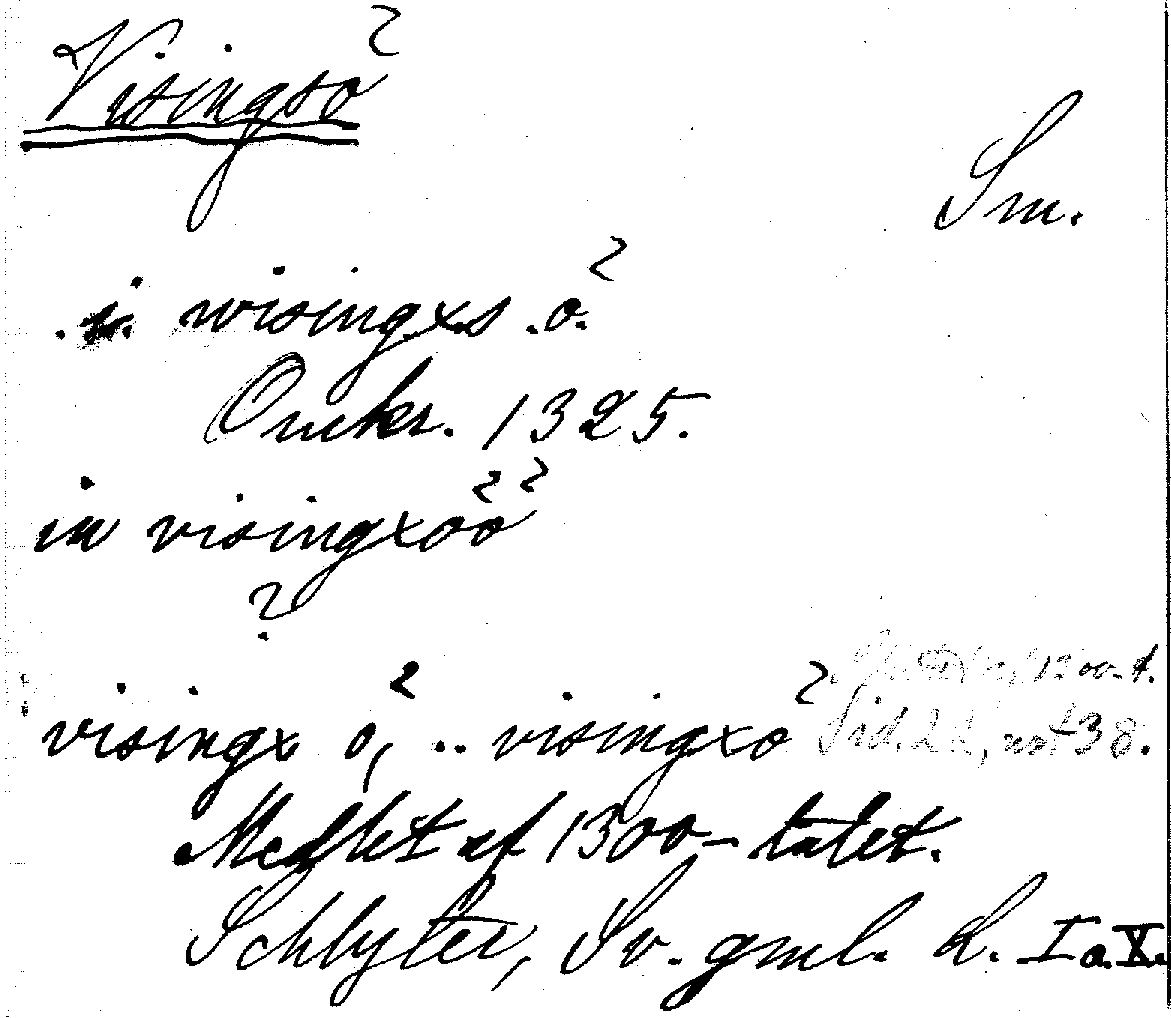 Visingsö
Sm.
i wisingxs .ö.
Omkr. 1325.
in visingxöö
?
visingx ö, .. visingxö
1300-t.
Sid. not 38.
Medlet af 1300-talet.
Schlyter, Sv. gml. L. I a. X.